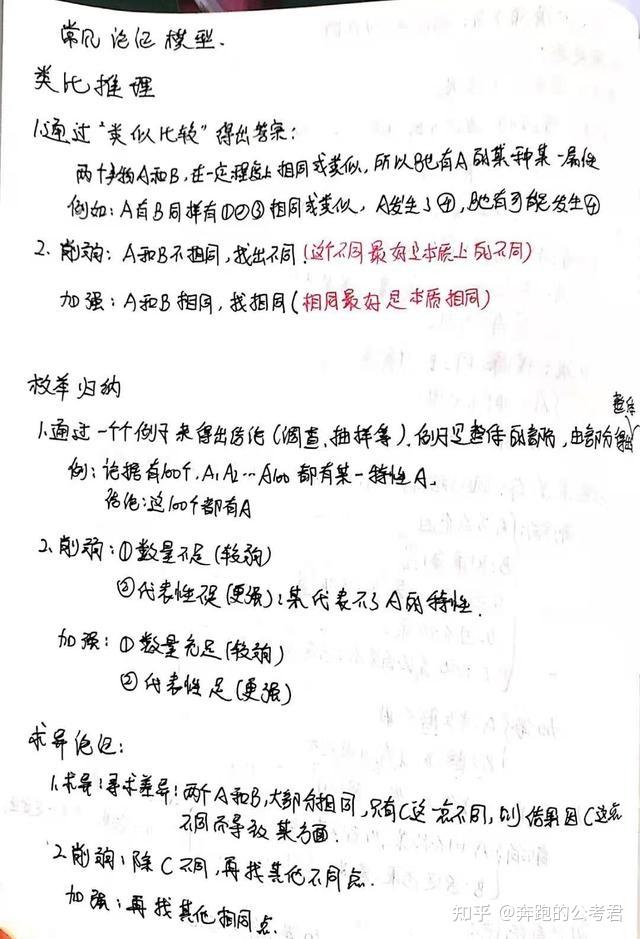 常见论证模型.
类比推理
1.通过“类似比较”得出答案:
两个事物A和B,在一定程度上相同或类似,所以B也有A的某种某一属性
例如:A有B同样有①②③相同或类似,A发生了④,B也有可能发生④
2.削弱:A和B不相同,找出不同(这个不同最好是本质上的不同)
加强:A和B相同,找相同(相同最好是本质相同)
枚举归纳
整体
1.通过一个个例子来得出结论(调查、抽样等).例子是整体的部分,由部分推出
例:论据有100个,A₁A₂…A100都有某一特性A.
结论:这100个都有A
2.削弱:①数量不足(较弱)
②代表性不足(更强):某代表不了A的特性.
加强:①数量充足(较弱)
②代表性足(更强)
求异论证:
1.求异:寻求差异:两个A和B,大部分相同,只有C这一点不同,则结果因C这点
不同而导致某方面.
2.削弱:除C不同,再找其他不同点.
加强:再找其他相同点.
知乎 @奔跑的公考君